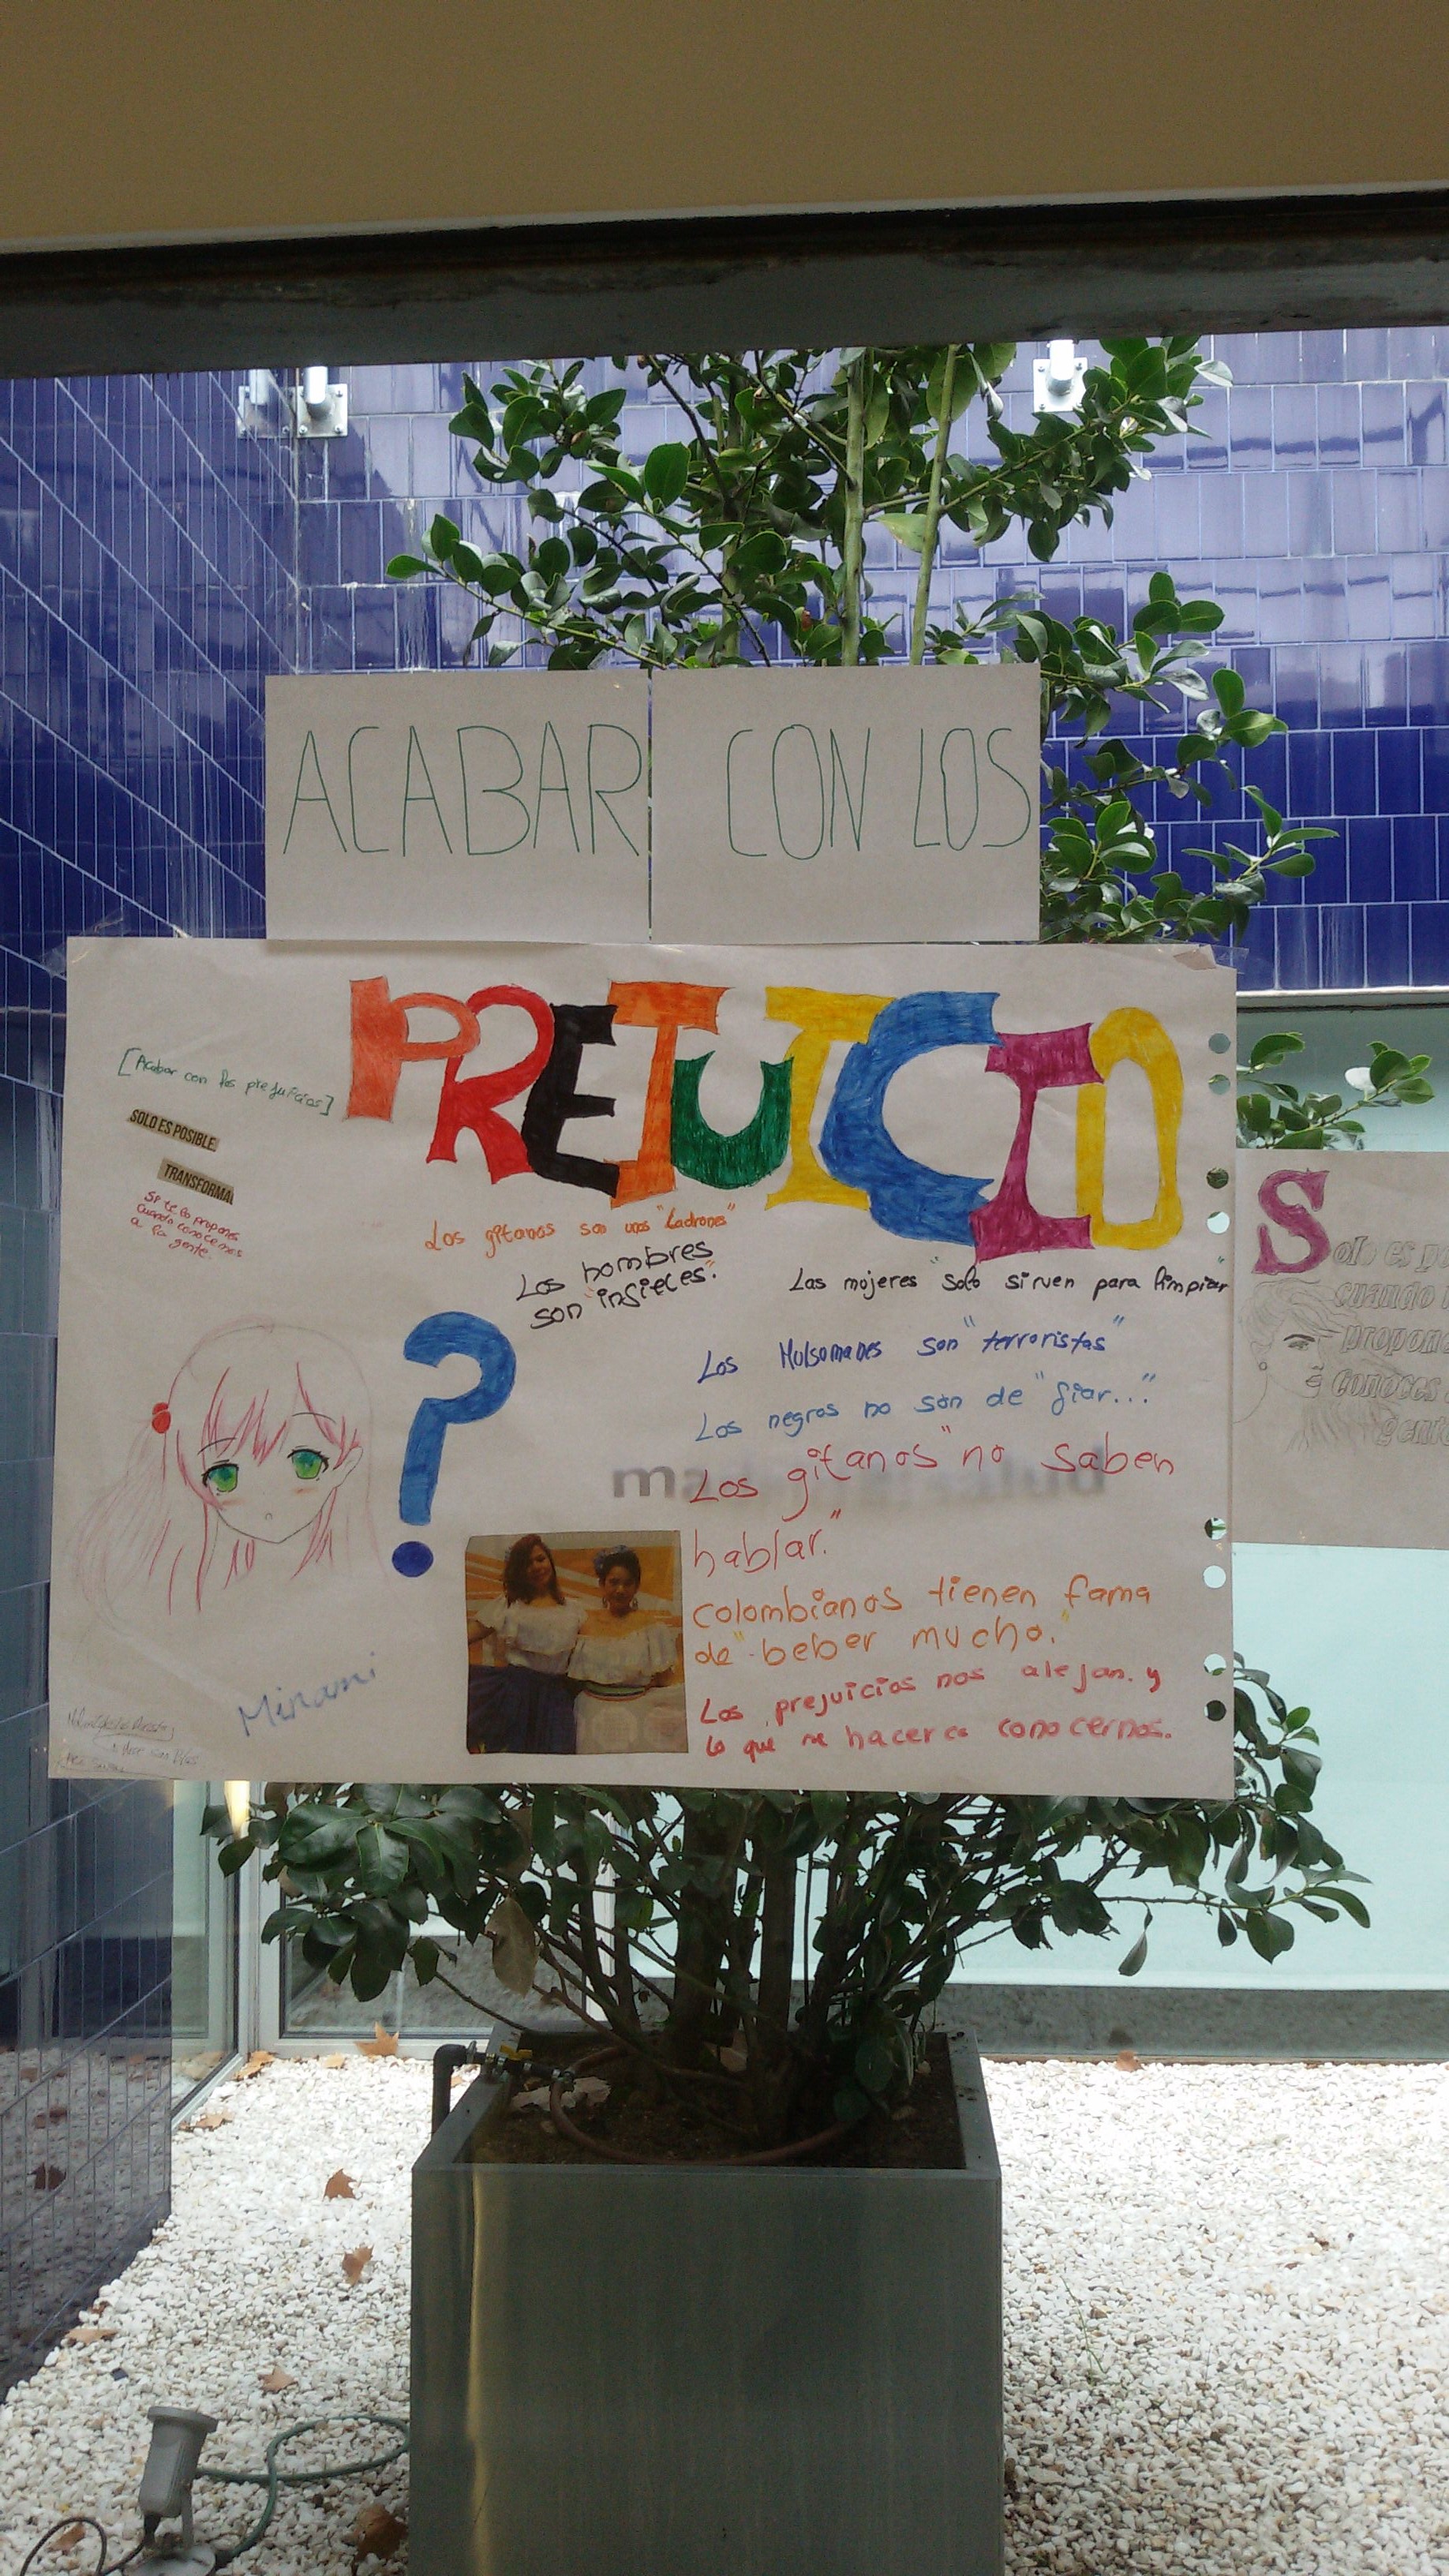 ACABAR CON LOS
PREJUICIO
[Acabar con los prejuicios]
SOLO ES POSIBLE
TRANSFORMA
Si te lo propones
cuando conocemos
a la gente.
Los gitanos son unos "Ladrones"
Los hombres
son "infieles".
Las mujeres "solo sirven para limpiar"
Los Mulsomanes son "terroristas"
Los negros no son de "fiar..."
Los gitanos "no saben
hablar."
Colombianos tienen fama
de "beber mucho."
Los prejuicios nos alejan. y
lo que me hacerca conocernos.
Minami
Solo es po
cuando
propon
conoces
gente